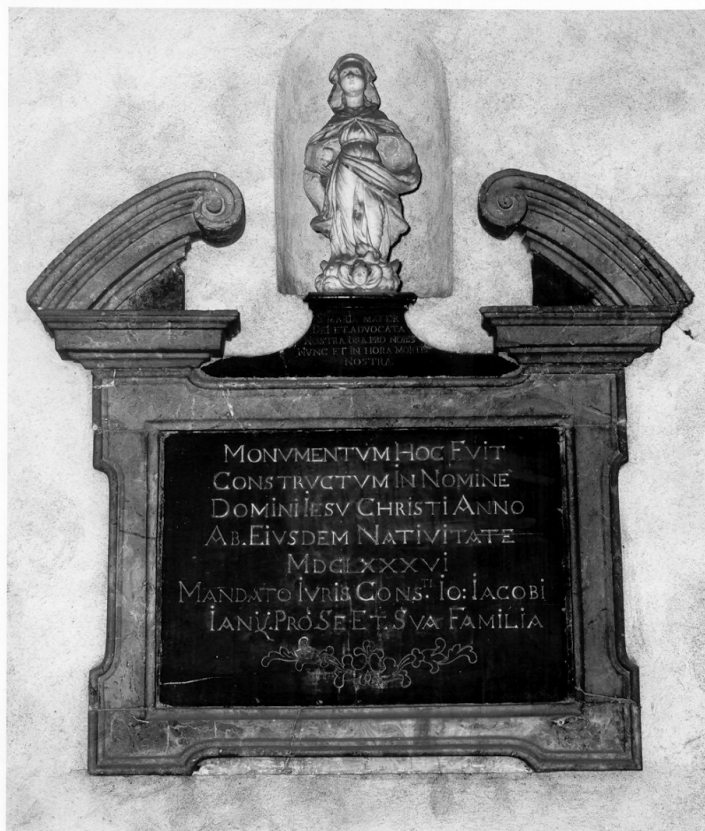 MARIA MATER
DEI ET ADVOCATA
NOSTRA ORA PRO NOBIS
NUNC ET IN HORA MORTIS
NOSTRÆ
MONVMENTVM HOC FVIT
CONSTRVCTVM IN NOMINE
DOMINI IESV CHRISTI ANNO
AB. EIVSDEM NATIVITATE
MDCLXXXVI
MANDATO IVRIS CONS.TI IO: IACOBI
PRO. SE ET. SVA FAMILIA